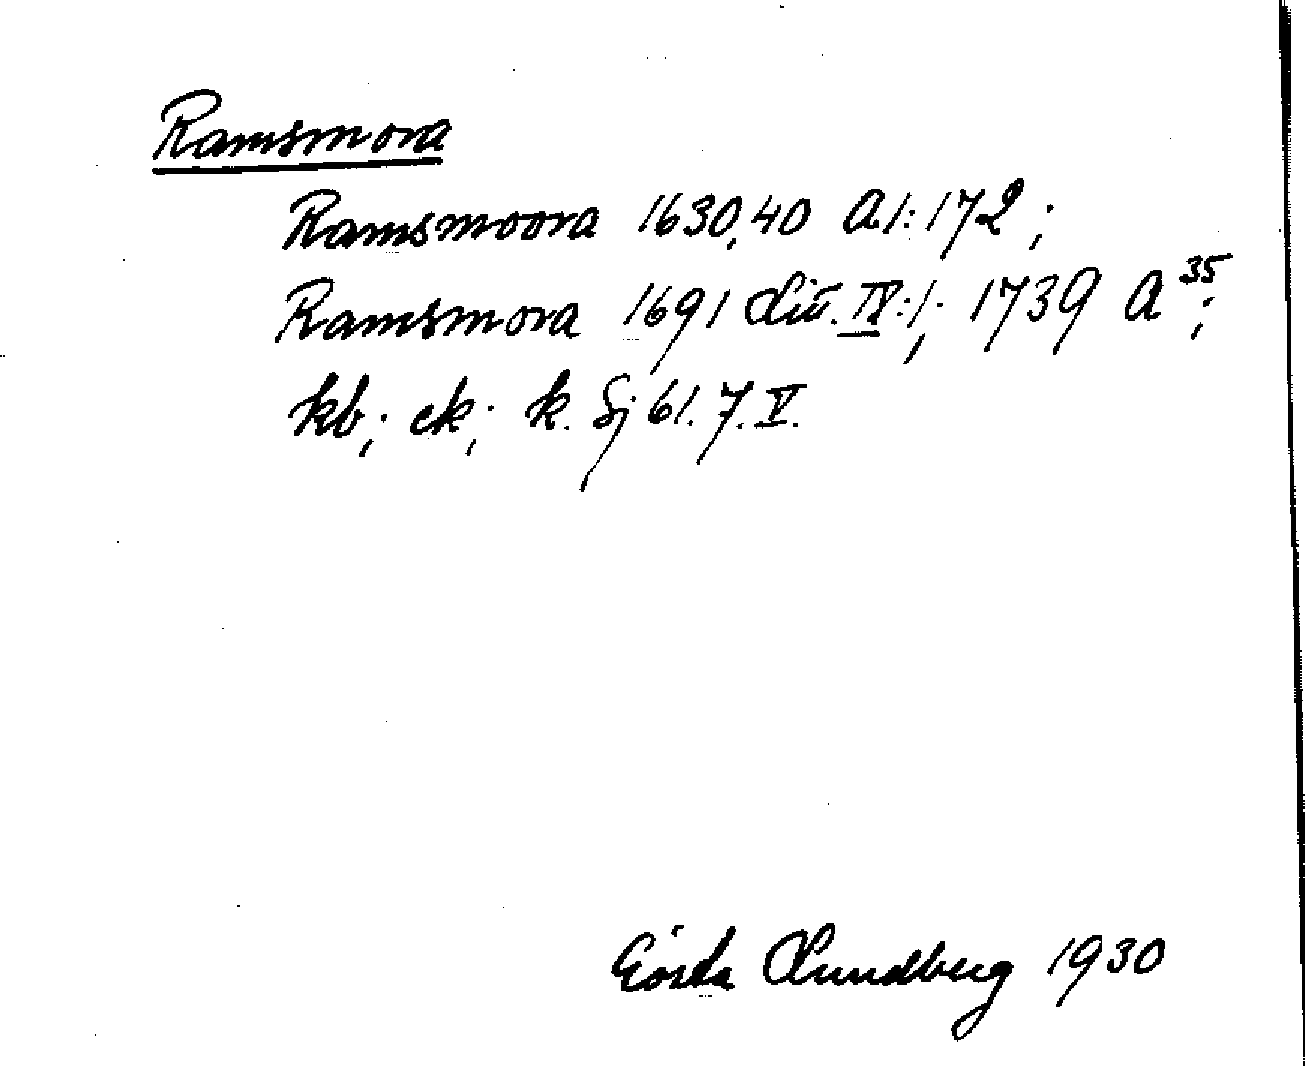 Ramsmora
Ramsmoora 1630, 40 A1:172;
Ramsmora 1691 Litt. IV:1; 1739 A 35;
kb; ek; k. Sj 61.7.V.
Gösta Lundberg 1930